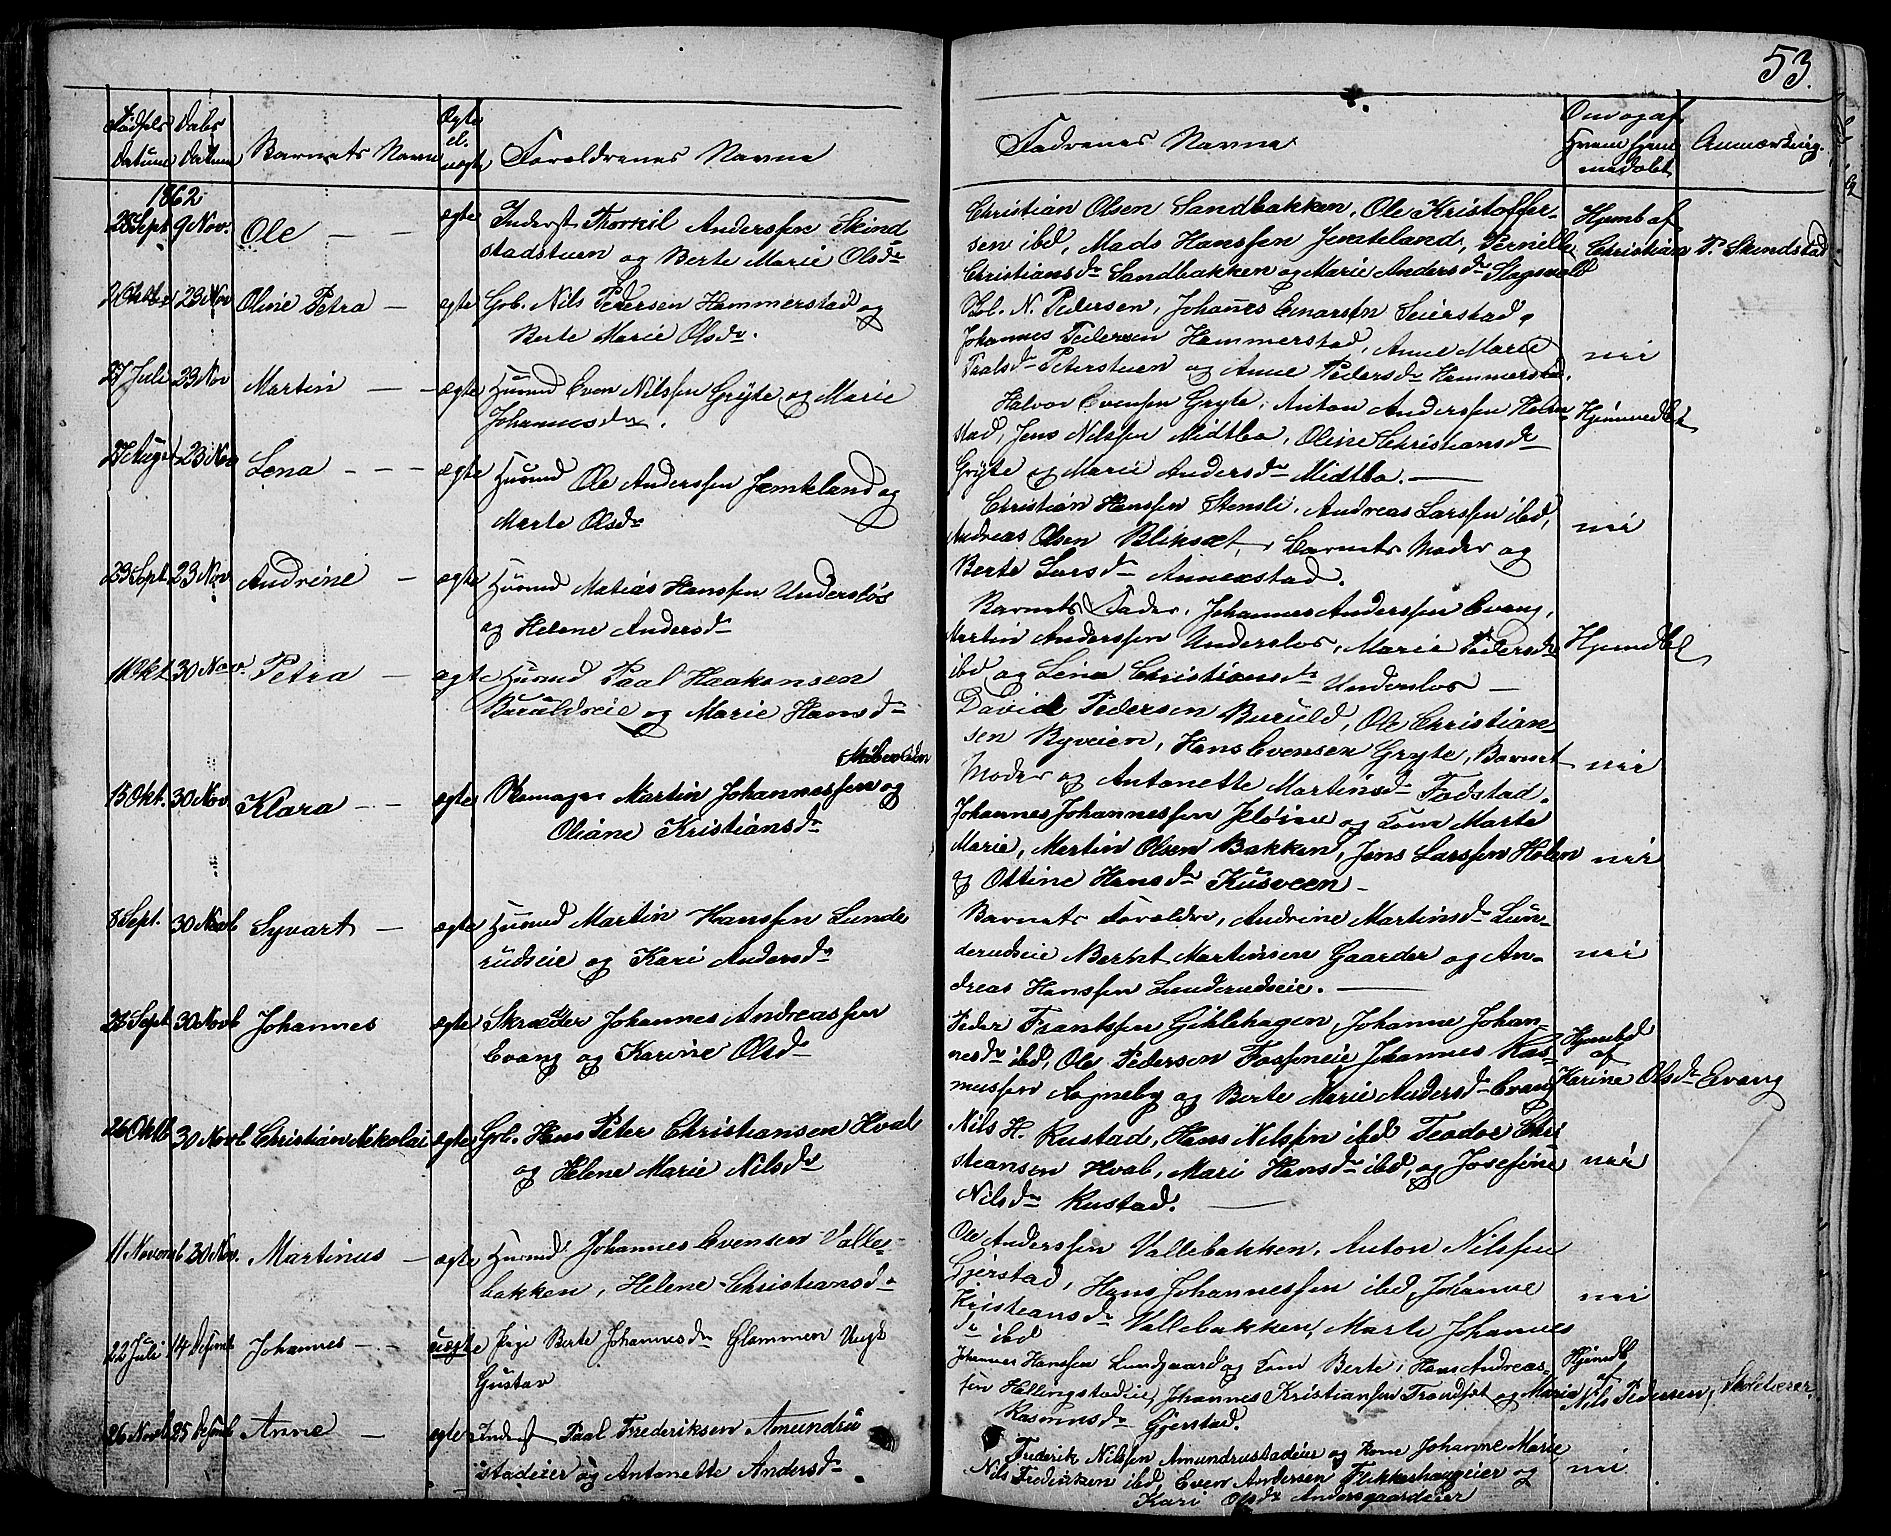 53.
Fødsels Datum
Daabs Datum
Barnets Navn
Ægte el. uægte
Forældrenes Navne
Faddrenes Navne
Om og af Hvem hjemmedøbt
Anmærkning.
1862
28 Sept 9 Nov. Ole — — ægte Inderst Thorkil Anderssen Skind
stadstuen og Berte Marie Olsdr
Christian Olsen Sandbakken, Ole Kristoffer-
sen ibd, Mads Hanssen Jemteland, Pernille
Christiansdr Sandbakken og Marie Andersdr Slagsvold
Hjemb af
Christian P. Skindstad
2 Oktbr 23 Nov Oline Petra — ægte Gb. Nils Pedersen Hammerstad og
Berte Marie Olsdr.
N. Pedersen, Johanes Seierstad,
Johannes Pedersen Hammerstad, Anne Marie
Paalsdr Peterstuen og Anne Pedersdr Hammerstad.
nei
27 Juli 23 Nov Martin — — ægte Huusmd Even Nilssen Gryte og Marie
Johannesdr.
Halvor Evensen Gryte, Anton Anderssen Holm-
stad, Jens Nilssen Midtbø, Oline Christiansdr
Gryte og Marie Andersdr Midtbø. —
Hjemmedbt
27 August 23 Nov Lena — — — ægte Huusmd Ole Anderssen Jemteland og
Marte Olsdr
Christian Hanssen Stensli, Andreas Larssen ibd,
Andreas Olsen Bliksæt, Barnets Moder og
Berte Larsdr Annexstad.
nei
23 Sept. 23 Nov Andrine — ægte Huusmd Matias Hanssen Undersløs
og Helene Andersdr
Barnets Fader, Johannes Anderssen Evang,
Martin Anderssen Undersløs, Marie Pedersdr
ibd og Lena Christiansdr Undersløs —
Hjemdbt
1 Okt 30 Nov. Petra — ægte Huusmd Paal Haakonsen
Buruldseie og Marie Hansdr
David Pedersen Buruld, Ole Christian-
sen Byveien, Hans Evensen Gryte, Barnets
Moder og Antonette Martinsdr Fodstad.
nei
15 Okt. 30 Nov. Klara — — ægte Martin Johannessen og
Oliane Kristiansdr
Johannes Johannessen og Kone Marte
Marie, Martin Olsen Bakken, Jens Larssen Holen
og Ottine Hansdr Kusveen —
nei
8 Sept. 30 Novb Syvart — ægte Huusmd Martin Hanssen Lunde
rudseie og Kari Andersdr
Barnets Forældre, Andrine Martinsdr Lun-
derudseie Bernt Martinsen Gaarder og An-
dreas Hanssen Lunderudseie. —
nei
28 Sept 30 Novb Johannes ægte Skræder Johannes Andreassen
Evang og Karine Olsdr
Peder Frantssen Gihlehagen, Johanne Johan-
nesdr ibd, Ole Pedersen Fossneie, Johannes Ras-
mussen Sogneby og Berte Marie Andersdr Evang
Hjembd
af
Karine Olsdr Evang
26 Oktb 30 Novb Christian Nikolai ægte Gb. Hans Peter Christiansen Hval
og Helene Marie Nilsdr
Nils H. Rustad, Hans Nilssen ibd Teodor Chri
steansen Hval, Mari Hansdr ibd, og Josefine
Nilsdr Rustad. —
nei
11 Novemb 30 Nov. Martinus — ægte Huusmd Johannes Evensen Valle-
bakken, Helene Christiansdr
Ole Anderssen Vallebakken, Anton Nilssen
Gjerstad, Hans Johannessen ibd, Johanne
Kristiansdr Vallebakken, Marte Johannes
dr ibd
nei
22 Juli 14 Desemb Johannes — - uægte Pige Berte Johannesdr Glemmen Ungk
Gustav
Johannes Hanssen Lundgaard og Kone Berte, Hans Andreas-
sen Hellingstadeie, Johannes Kristianssen Trondset og Marie
Rasmusdr Gjerstad.
Hjemdb
af
Nils Pedersen, Skolelærer,
26 Novb 25 Desemb Anne — ægte Inderst Paal Frederiksen Amundru
stadeier og Antonette Andersdr
Frederik Nilssen Amundrustadeier og Kone Johanne Marie
Nils Frederiken ibd, Even Andersen Flikkeshaugeier og
Kari Olsdr Andersgaardeier
nei